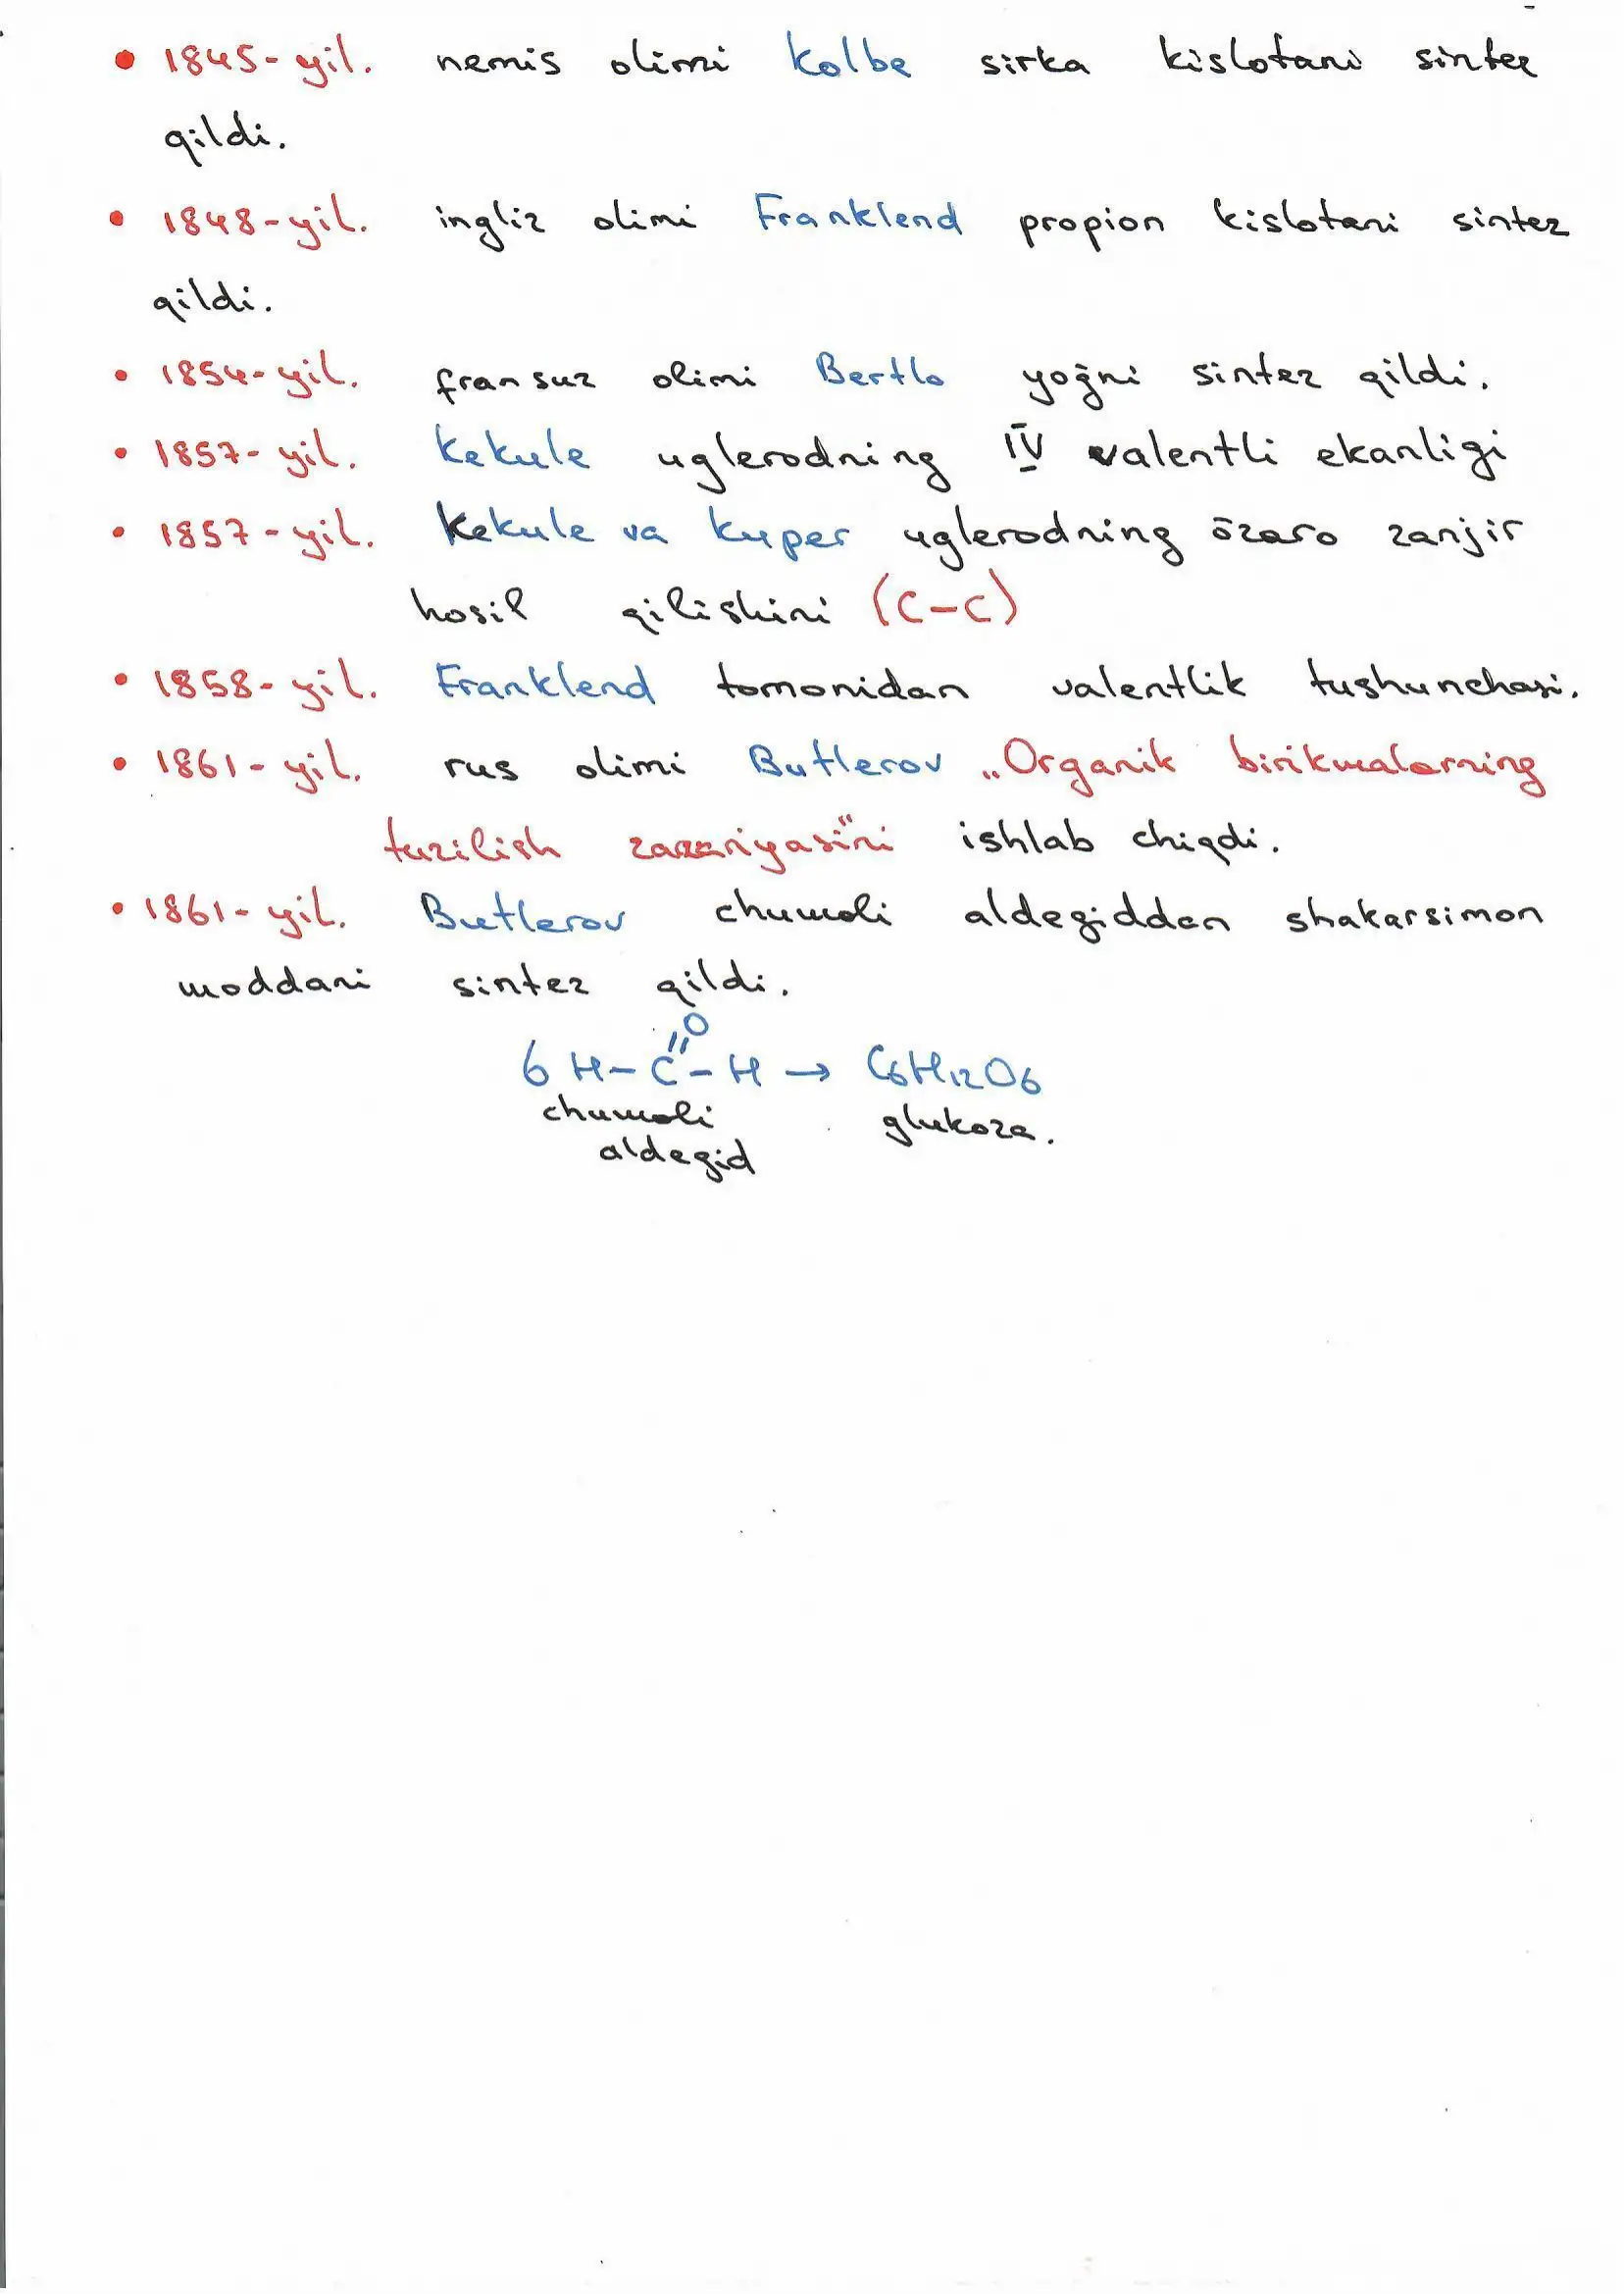 • 1845-yil. nemis olimi Kolbe sirka kislotani sintez
qildi.
• 1848-yil. ingliz olimi Franklend propion kislotani sintez
qildi.
• 1854-yil. fransuz olimi Bertlo yoḡni sintez qildi.
• 1857-yil. Kekule uglerodning IV valentli ekanligi
• 1857-yil. Kekule va Kuper uglerodning ōzaro zanjir
hosil qilishini (C-C)
• 1858-yil. Franklend tomonidan valentlik tushunchasi.
• 1861-yil. rus olimi Butlerov „Organik birikmalarning
tuzilish nazariyasi"ni ishlab chiqdi.
• 1861-yil. Butlerov chumoli aldegiddan shakarsimon
moddani sintez qildi.
O
6 H-C-H → C6H12O6
chumoli glukoza.
aldegid